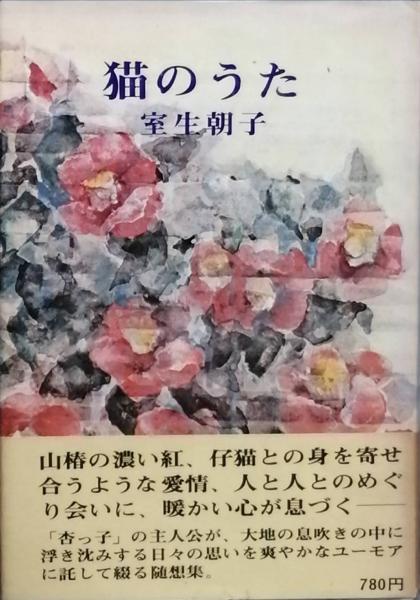 猫のうた
室生朝子
山椿の濃い紅、仔猫との身を寄せ
合うような愛情、人と人とのめぐ
り会いに、暖かい心が息づく──
「杏っ子」の主人公が、大地の息吹きの中に
浮き沈みする日々の思いを爽やかなユーモア
に託して綴る随想集。
780円